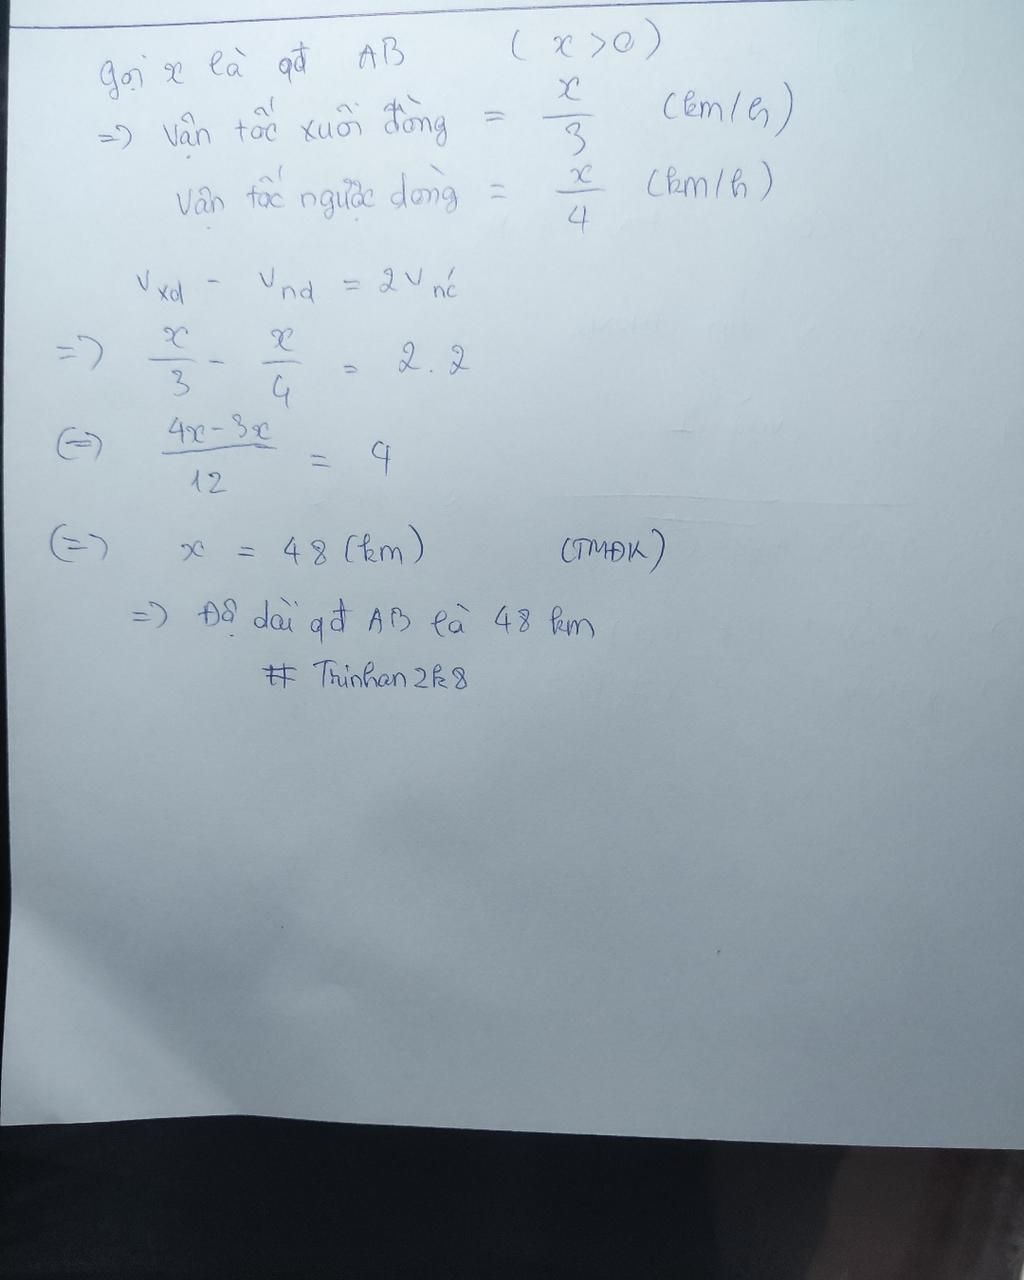 Gọi x là qđ AB ( x > 0 )
=> Vận tốc xuôi dòng = x/3 (km/h)
Vận tốc ngược dòng = x/4 (km/h)
Vxd - Vnd = 2Vnć
=> x/3 - x/4 = 2.2
(=) (4x-3x)/12 = 4
(=) x = 48 (km) (TMĐK)
=) Độ dài qđ AB là 48 km
# Thinhan2k8